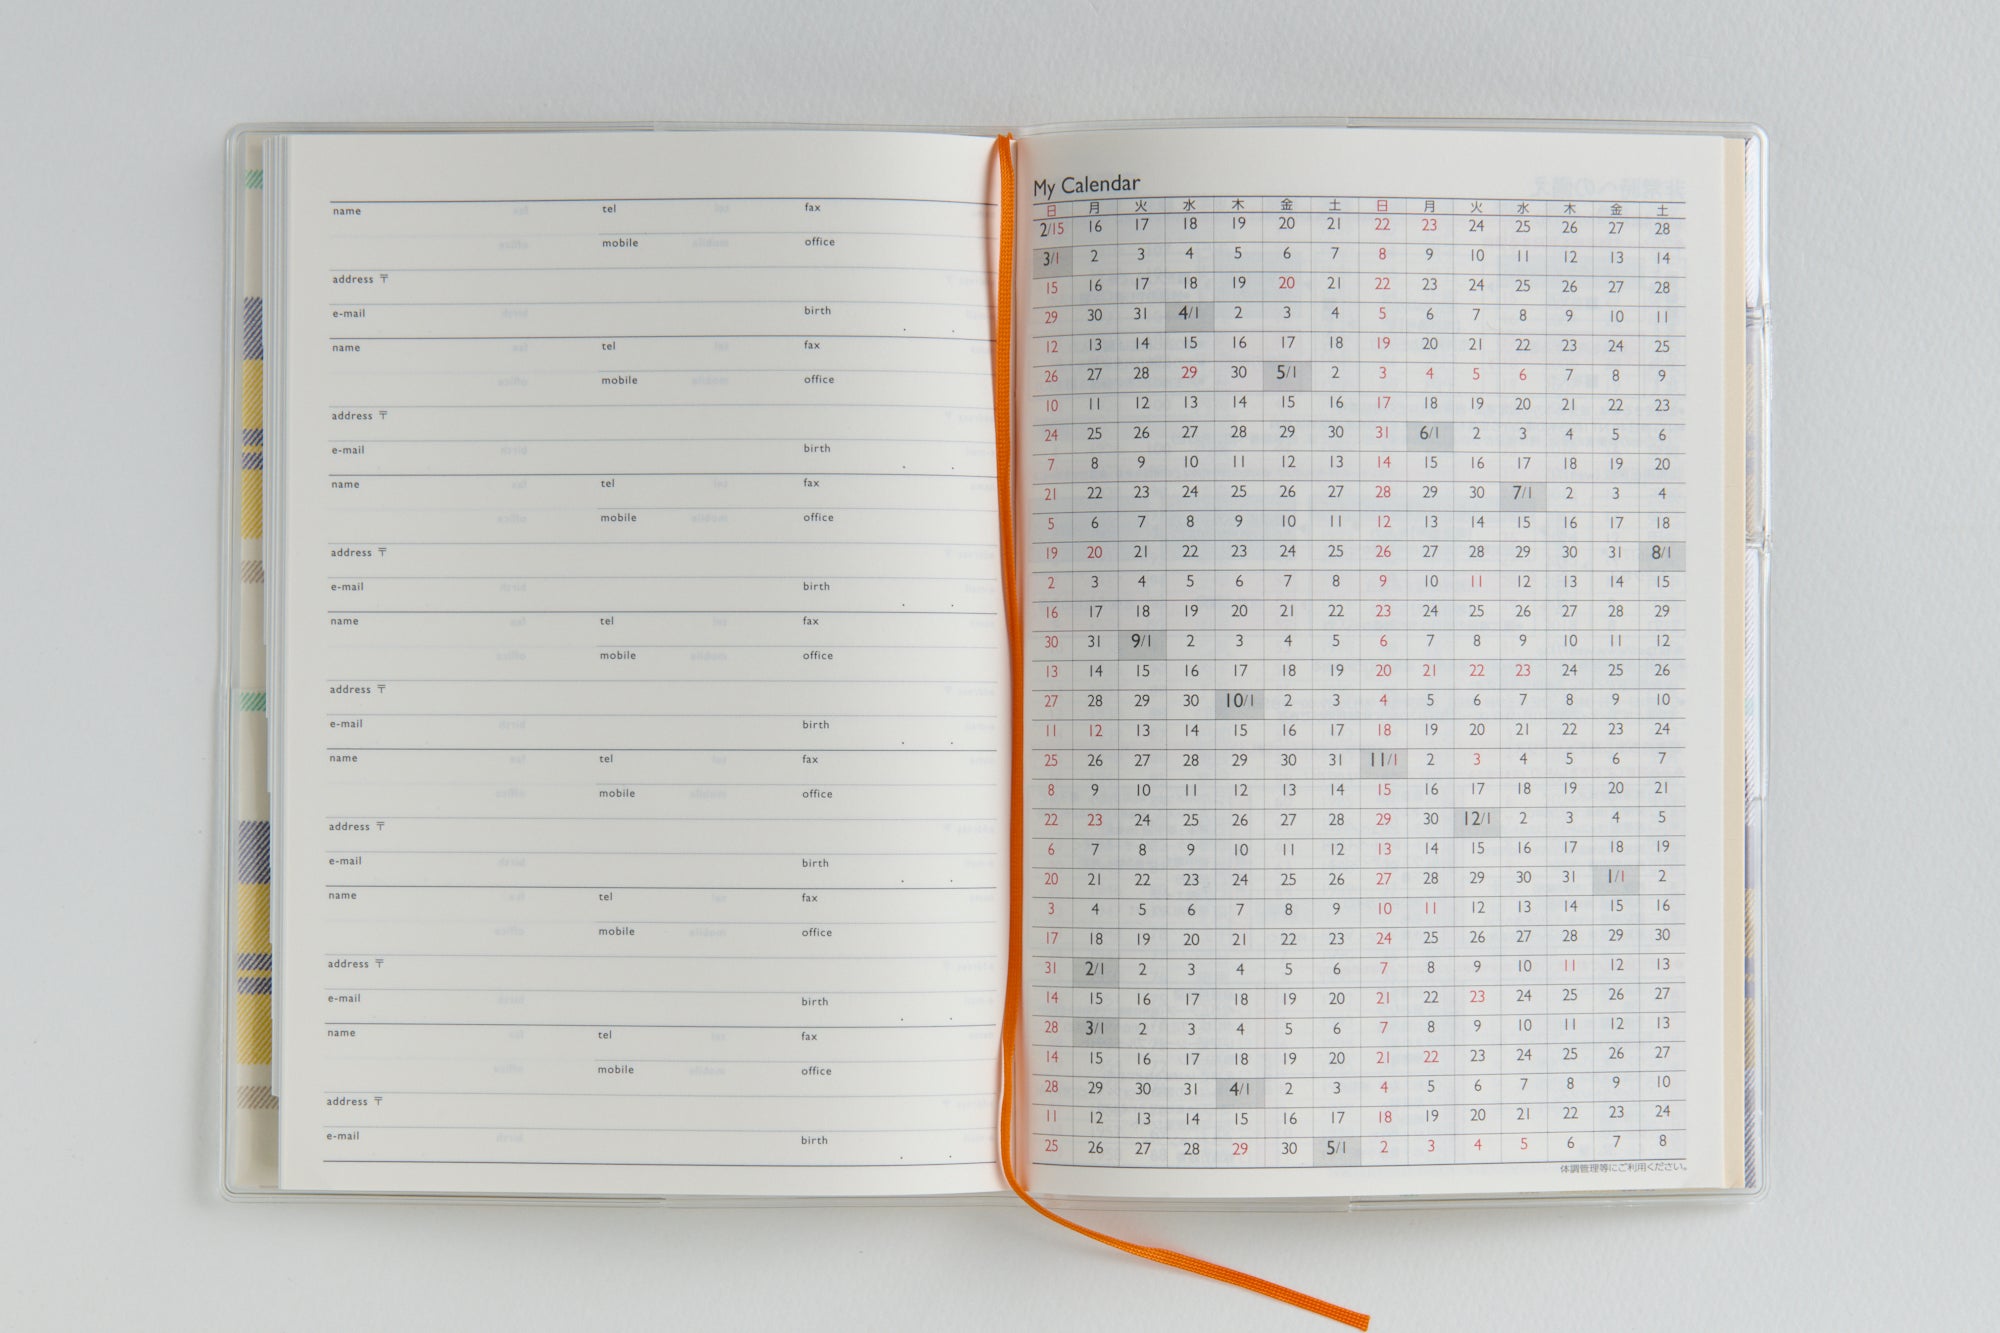 name tel fax
mobile office
address 〒
e-mail birth . .
name tel fax
mobile office
address 〒
e-mail birth . .
name tel fax
mobile office
address 〒
e-mail birth . .
name tel fax
mobile office
address 〒
e-mail birth . .
name tel fax
mobile office
address 〒
e-mail birth . .
name tel fax
mobile office
address 〒
e-mail birth . .
name tel fax
mobile office
address 〒
e-mail birth . .
My Calendar
日 月 火 水 木 金 土 日 月 火 水 木 金 土
2/15 16 17 18 19 20 21 22 23 24 25 26 27 28
3/1 2 3 4 5 6 7 8 9 10 11 12 13 14
15 16 17 18 19 20 21 22 23 24 25 26 27 28
29 30 31 4/1 2 3 4 5 6 7 8 9 10 11
12 13 14 15 16 17 18 19 20 21 22 23 24 25
26 27 28 29 30 5/1 2 3 4 5 6 7 8 9
10 11 12 13 14 15 16 17 18 19 20 21 22 23
24 25 26 27 28 29 30 31 6/1 2 3 4 5 6
7 8 9 10 11 12 13 14 15 16 17 18 19 20
21 22 23 24 25 26 27 28 29 30 7/1 2 3 4
5 6 7 8 9 10 11 12 13 14 15 16 17 18
19 20 21 22 23 24 25 26 27 28 29 30 31 8/1
2 3 4 5 6 7 8 9 10 11 12 13 14 15
16 17 18 19 20 21 22 23 24 25 26 27 28 29
30 31 9/1 2 3 4 5 6 7 8 9 10 11 12
13 14 15 16 17 18 19 20 21 22 23 24 25 26
27 28 29 30 10/1 2 3 4 5 6 7 8 9 10
11 12 13 14 15 16 17 18 19 20 21 22 23 24
25 26 27 28 29 30 31 11/1 2 3 4 5 6 7
8 9 10 11 12 13 14 15 16 17 18 19 20 21
22 23 24 25 26 27 28 29 30 12/1 2 3 4 5
6 7 8 9 10 11 12 13 14 15 16 17 18 19
20 21 22 23 24 25 26 27 28 29 30 31 1/1 2
3 4 5 6 7 8 9 10 11 12 13 14 15 16
17 18 19 20 21 22 23 24 25 26 27 28 29 30
31 2/1 2 3 4 5 6 7 8 9 10 11 12 13
14 15 16 17 18 19 20 21 22 23 24 25 26 27
28 3/1 2 3 4 5 6 7 8 9 10 11 12 13
14 15 16 17 18 19 20 21 22 23 24 25 26 27
28 29 30 31 4/1 2 3 4 5 6 7 8 9 10
11 12 13 14 15 16 17 18 19 20 21 22 23 24
25 26 27 28 29 30 5/1 2 3 4 5 6 7 8
体調管理等にご利用ください。